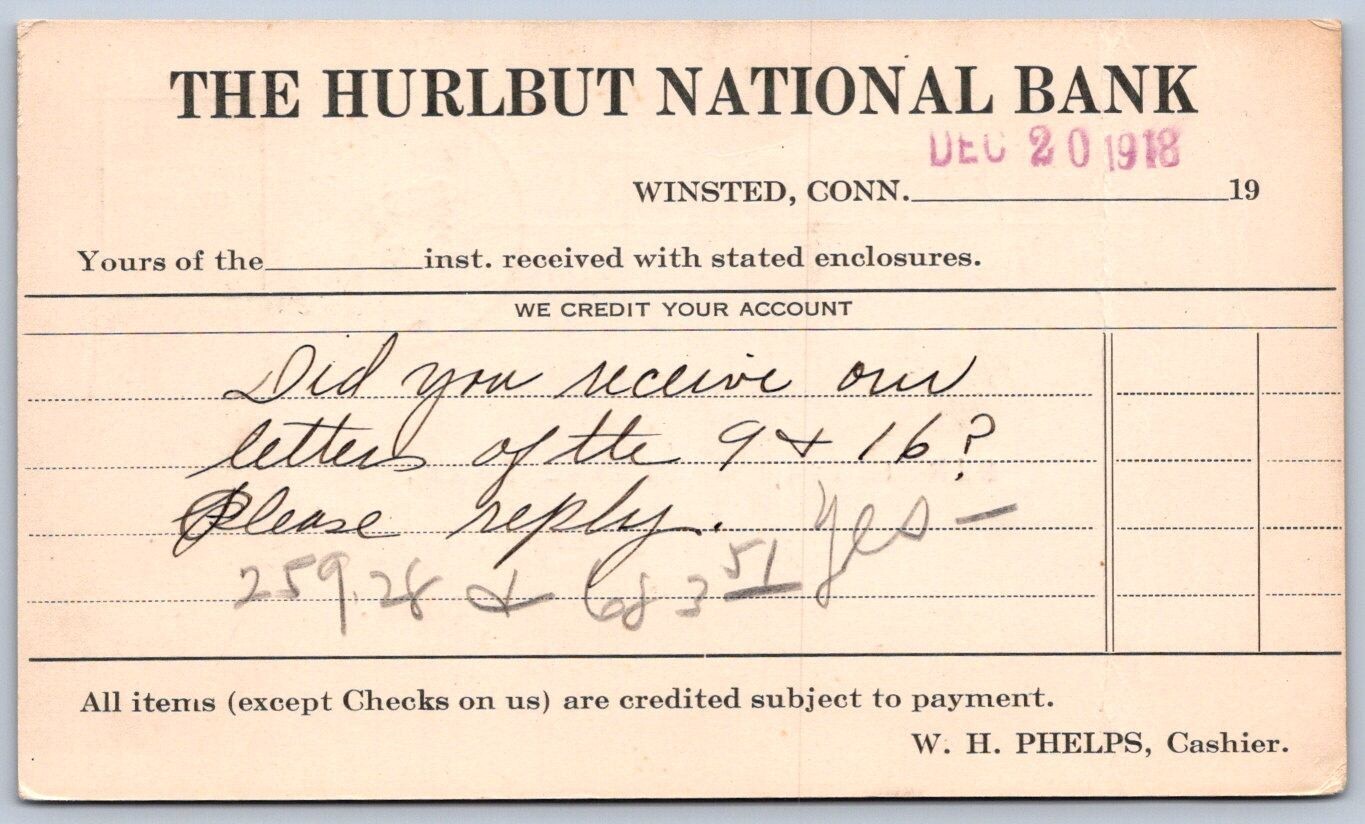 THE HURLBUT NATIONAL BANK
DEC 20 1918
WINSTED, CONN. 19
Yours of the inst. received with stated enclosures.
WE CREDIT YOUR ACCOUNT
Did you receive our
letters of the 9 & 16?
Please reply. Yes —
259.28 & 683 51
All items (except Checks on us) are credited subject to payment.
W. H. PHELPS, Cashier.